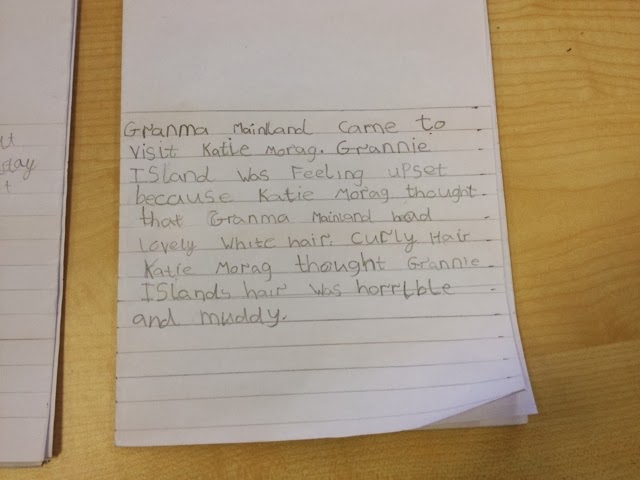 ut
day
t
Granma Mainland came to
visit Katie Morag. Grannie
ISland was Feeling upset
because Katie Morag thought
that Granma Mainland had
lovely white hair. Curly Hair
Katie Morag thought Grannie
ISlands hair was horrible
and muddy.